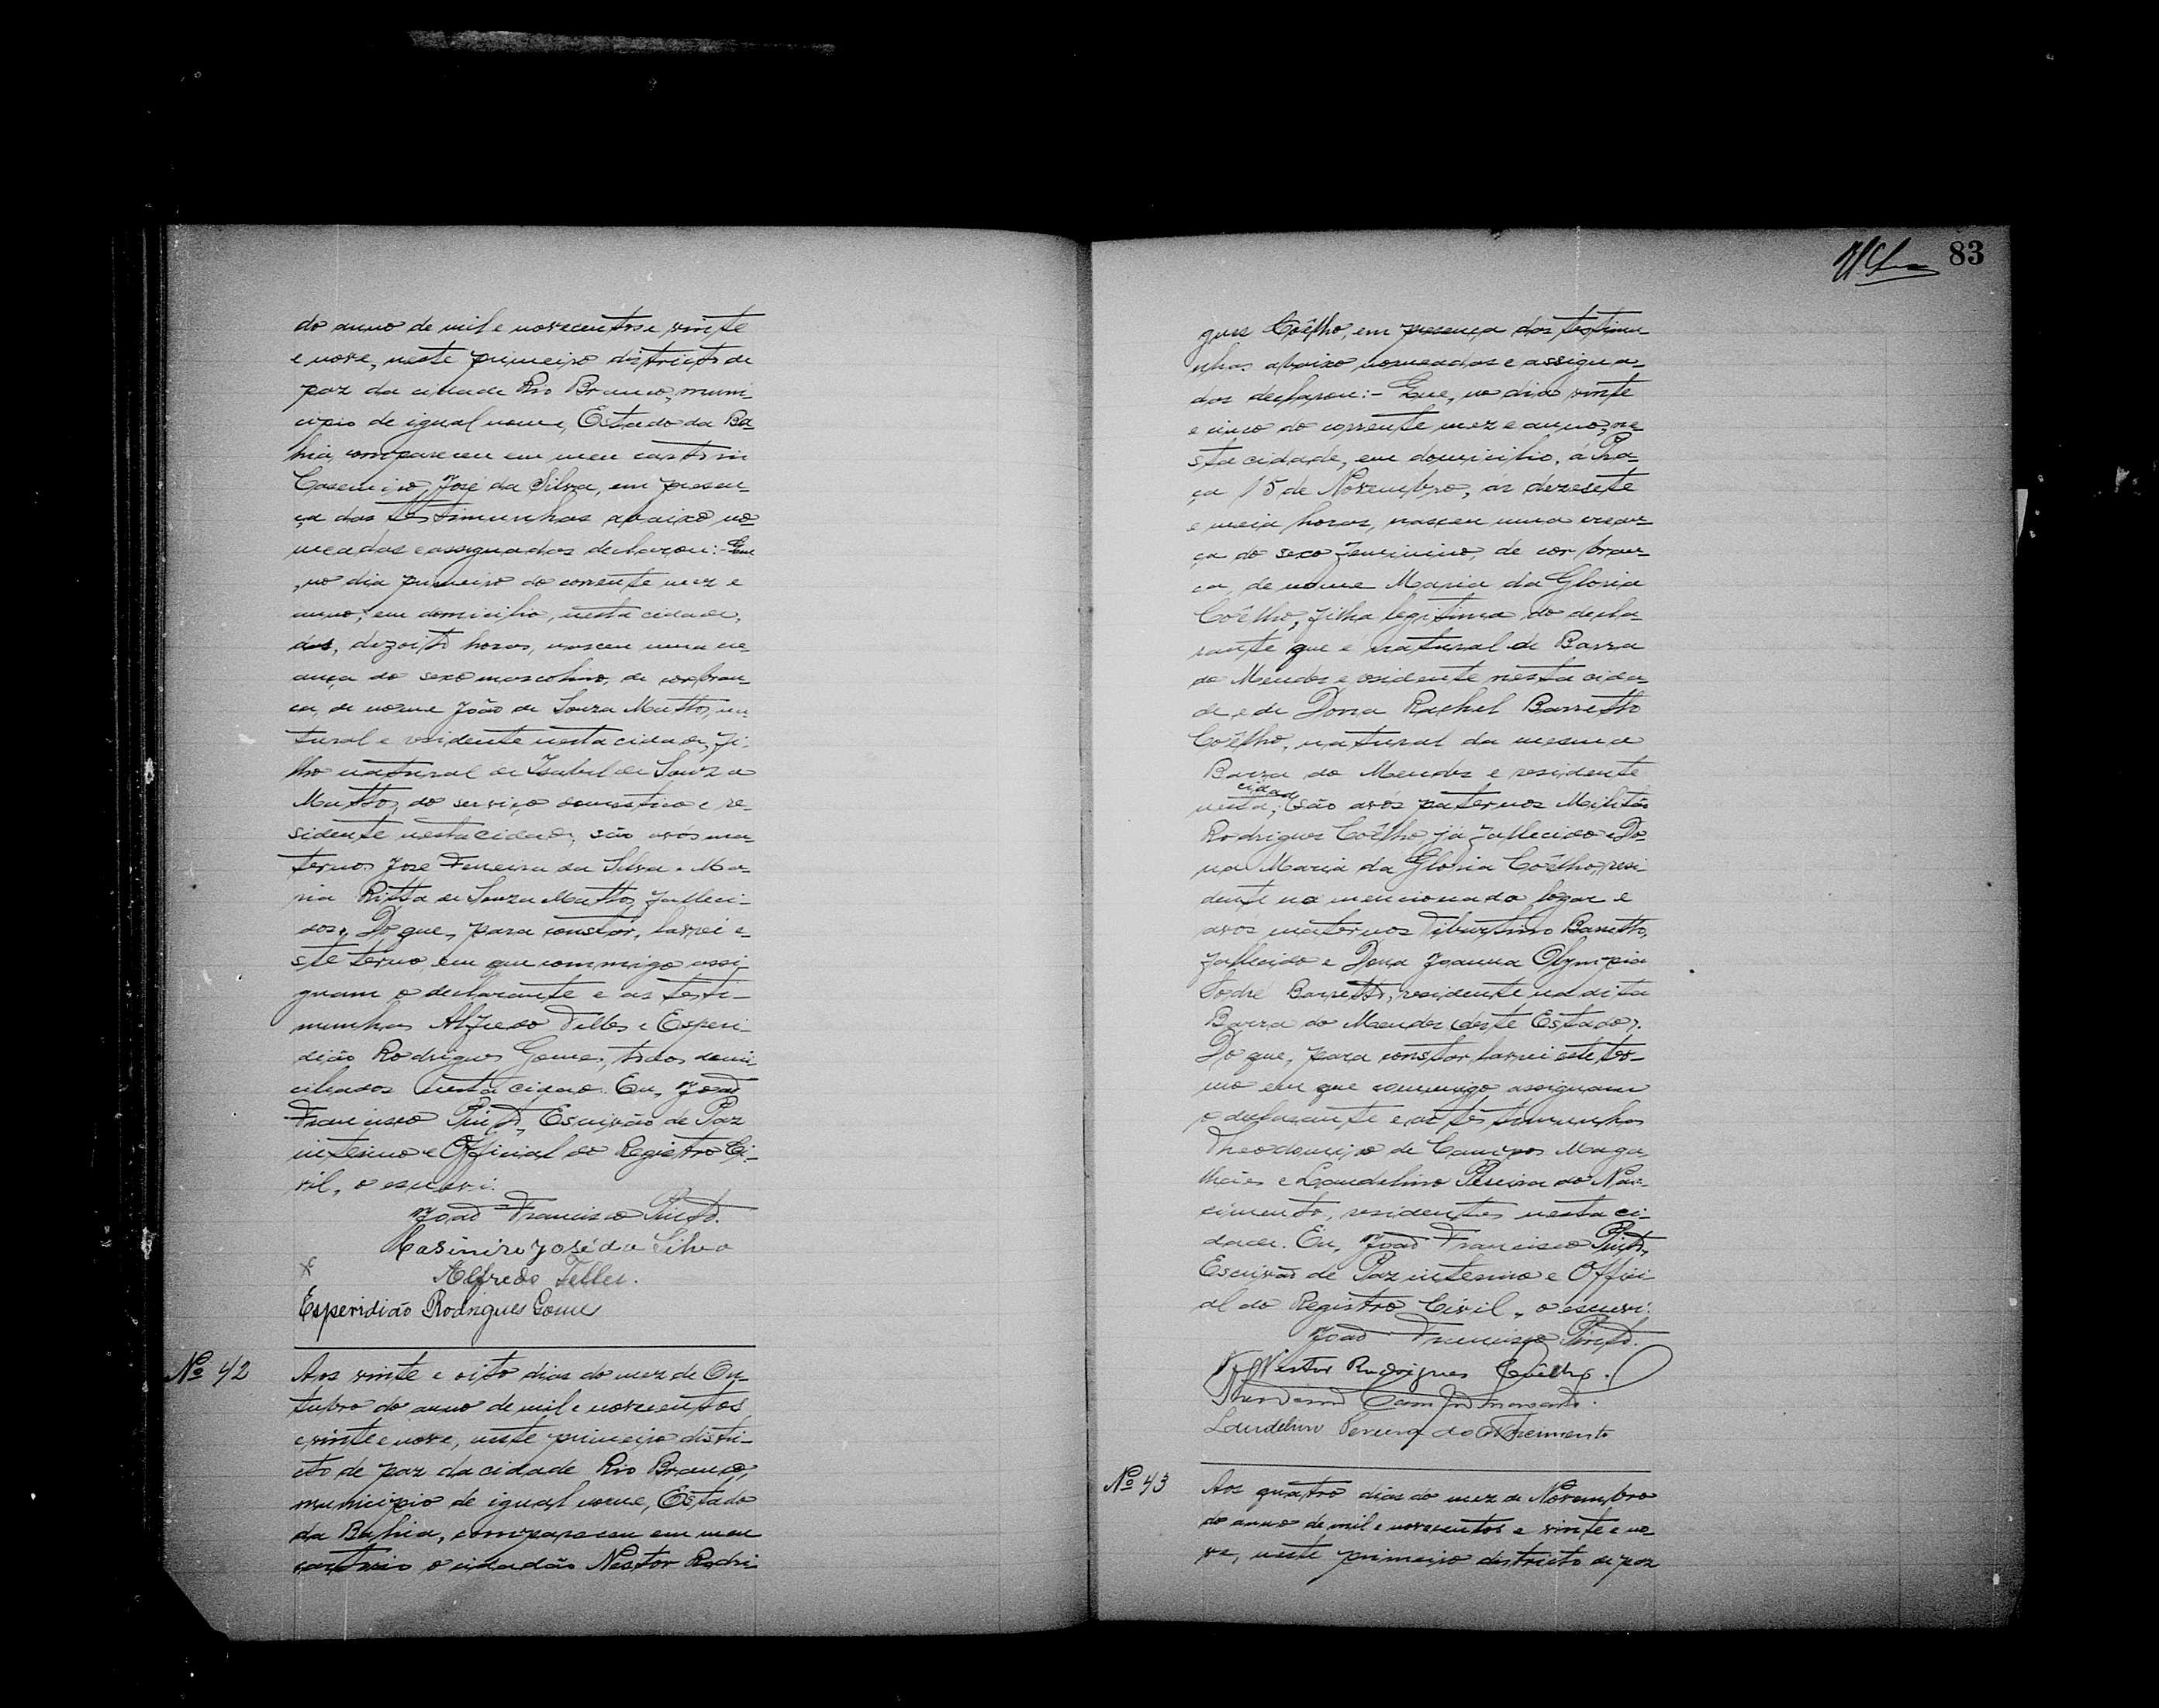 do anno de mil e novecentos e vinte
e nove, neste primeiro districto de
paz da cidade Rio Branco, muni-
cipio de igual nome, Estado da Ba-
hia, compareceu em meu cartorio
Casemiro José da Silva, em presen-
ça das testimunhas abaixo no-
meadas e assignadas declarou:- Que
, no dia primeiro do corrente mez e
anno, em domicilio, nesta cidade,
das, dezoito horas, nasceu uma cre-
ança do sexo mascolino, de cor bran-
ca, de nome João de Souza Mattos, na-
tural e residente nesta cidade, fi-
lho natural de Izabel de Souza
Mattos, do serviço domestico e re-
sidente nesta cidade, são avós ma-
ternos José Ferreira da Silva e Ma-
ria Ritta de Souza Mattos, falleci-
dos. Do que, para constar, lavrei e-
ste termo em que commigo assi-
gnam o declarante e as testi-
munhas Alfredo Telles e Esperi-
dião Rodrigues Gomes, todos domi-
ciliados nesta cidade. Eu, João
Francisco Pinto, Escrivão de Paz
interino e Official do Registro Ci-
vil, o escrevi.
João Francisco Pinto.
Casimiro José da Silva
Alfredo Telles.
Esperidião Rodrigues Gomes
Nº 42
Aos vinte e oito dias do mez de Ou-
tubro do anno de mil e novecentos
e vinte e nove, neste primeiro distri-
cto de paz da cidade Rio Branco,
municipio de igual nome, Estado
da Bahia, compareceu em meu
cartorio o cidadão Nestor Rodri-
83
gues Coêlho, em presença das testimu-
nhas abaixo nomeadas e assigna-
das declarou:- Que, no dia vinte
e cinco do corrente mez e anno, ne-
sta cidade, em domicilio, á Pra-
ça 15 de Novembro, as dezesete
e meia horas, nasceu uma crean-
ça do sexo feminino, de cor bran-
ca, de nome Maria da Gloria
Coêlho, filha legitima do decla-
rante que é natural de Barra
do Mendes e residente nesta cida-
de, e de Dona Rachel Barretto
Coêlho, natural da mesma
Barra do Mendes e residente
nesta cidade; são avós paternos Militão
Rodrigues Coêlho já fallecido e Do-
na Maria da Gloria Coêlho, resi-
dente no mencionado logar e
avós maternos Tiburtino Barretto,
fallecido e Dona Joanna Olympia
Sodré Barretto, residente na dita
Barra do Mendes, deste Estado.
Do que, para constar, lavrei este ter-
mo em que commigo assignam
o declarante e as testimunhas
Theodomiro de Campos Maga-
lhães e Laudelino Pereira do Nas-
cimento, residentes nesta ci-
dade. Eu, João Francisco Pinto,
Escrivão de Paz interino e Offici-
al do Registro Civil, o escrevi.
João Francisco Pinto.
Nestor Rodrigues Coêlho.
Laudelino Pereira do Nascimento
Nº 43
Aos quatro dias do mez de Novembro
do anno de mil e novecentos e vinte e no-
ve, neste primeiro districto de paz